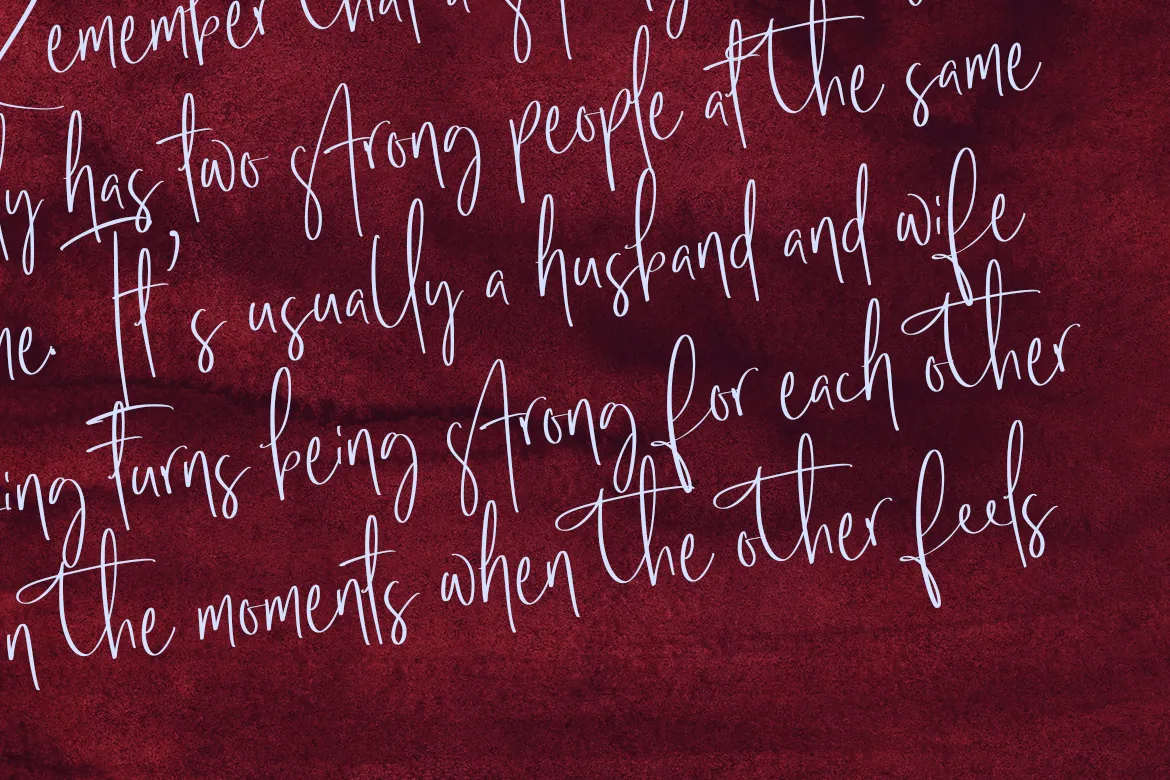 Remember that a strong
has two strong people at the same
It's usually a husband and wife
turns being strong for each other
the moments when the other feels